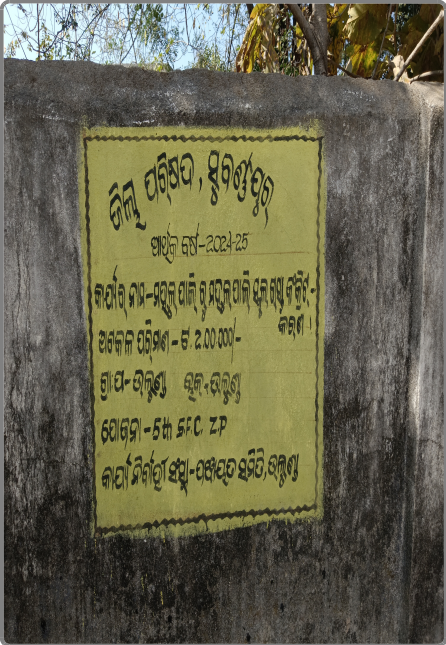 ଜିଲ୍ଲା ପରିଷଦ, ସୁବର୍ଣ୍ଣପୁର
ଆର୍ଥିକ ବର୍ଷ-2024-25
କାର୍ଯ୍ୟର ନାମ-ମଦୁଲପାଲି ରୁ ମଦୁଲପାଲି ସ୍କୁଲ ରାସ୍ତା କଂକ୍ରିଟ-
କରଣ ।
ଅଟକଳ ପରିମାଣ - ଟ 2.00.000/-
ଗ୍ରା:ପ-ଉଲୁଣ୍ଡା ବ୍ଲକ୍-ଉଲୁଣ୍ଡା
ଯୋଜନା-5th S.F.C. Z.P
କାର୍ଯ୍ୟ ନିର୍ବାହୀ ସଂସ୍ଥା-ପଞ୍ଚାୟତ ସମିତି, ଉଲୁଣ୍ଡା